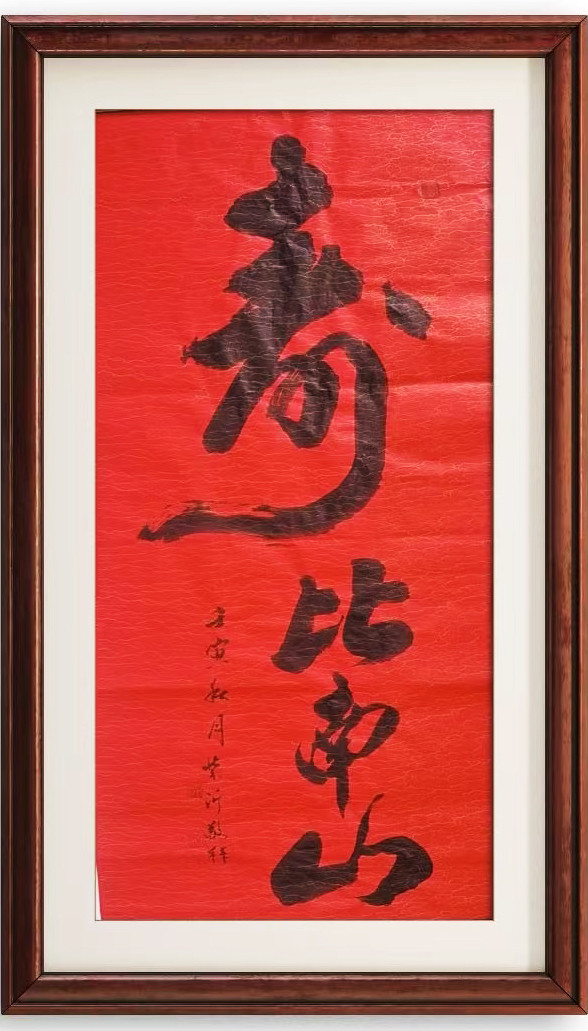 寿比南山
壬寅秋月